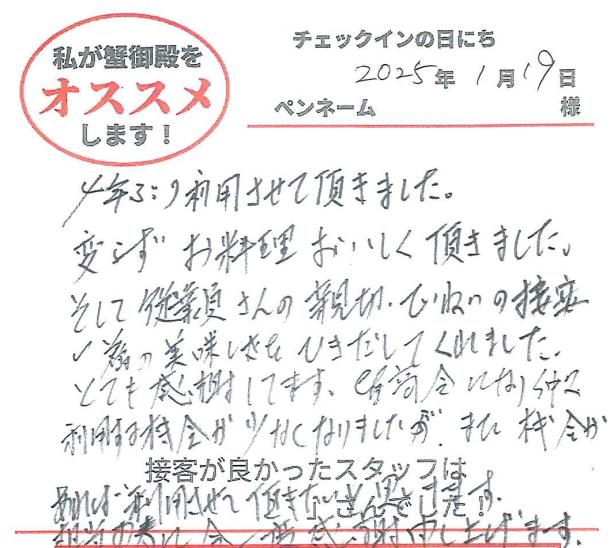 私が蟹御殿を
オススメ
します！
チェックインの日にち
2025年 1月19日
ペンネーム 様
4年ぶり利用させて頂きました。
変らず お料理 おいしく 頂きました。
そして 従業員さんの 親切、ていねいの接客
い 美味しさを ひきだしてくれました。
とても感謝してます。
利用する機会が少なくなりましたが、また 機会が
接客が良かったスタッフは
さんでした！
あれば 利用させて頂きたいと思ってます。
申し上げます。